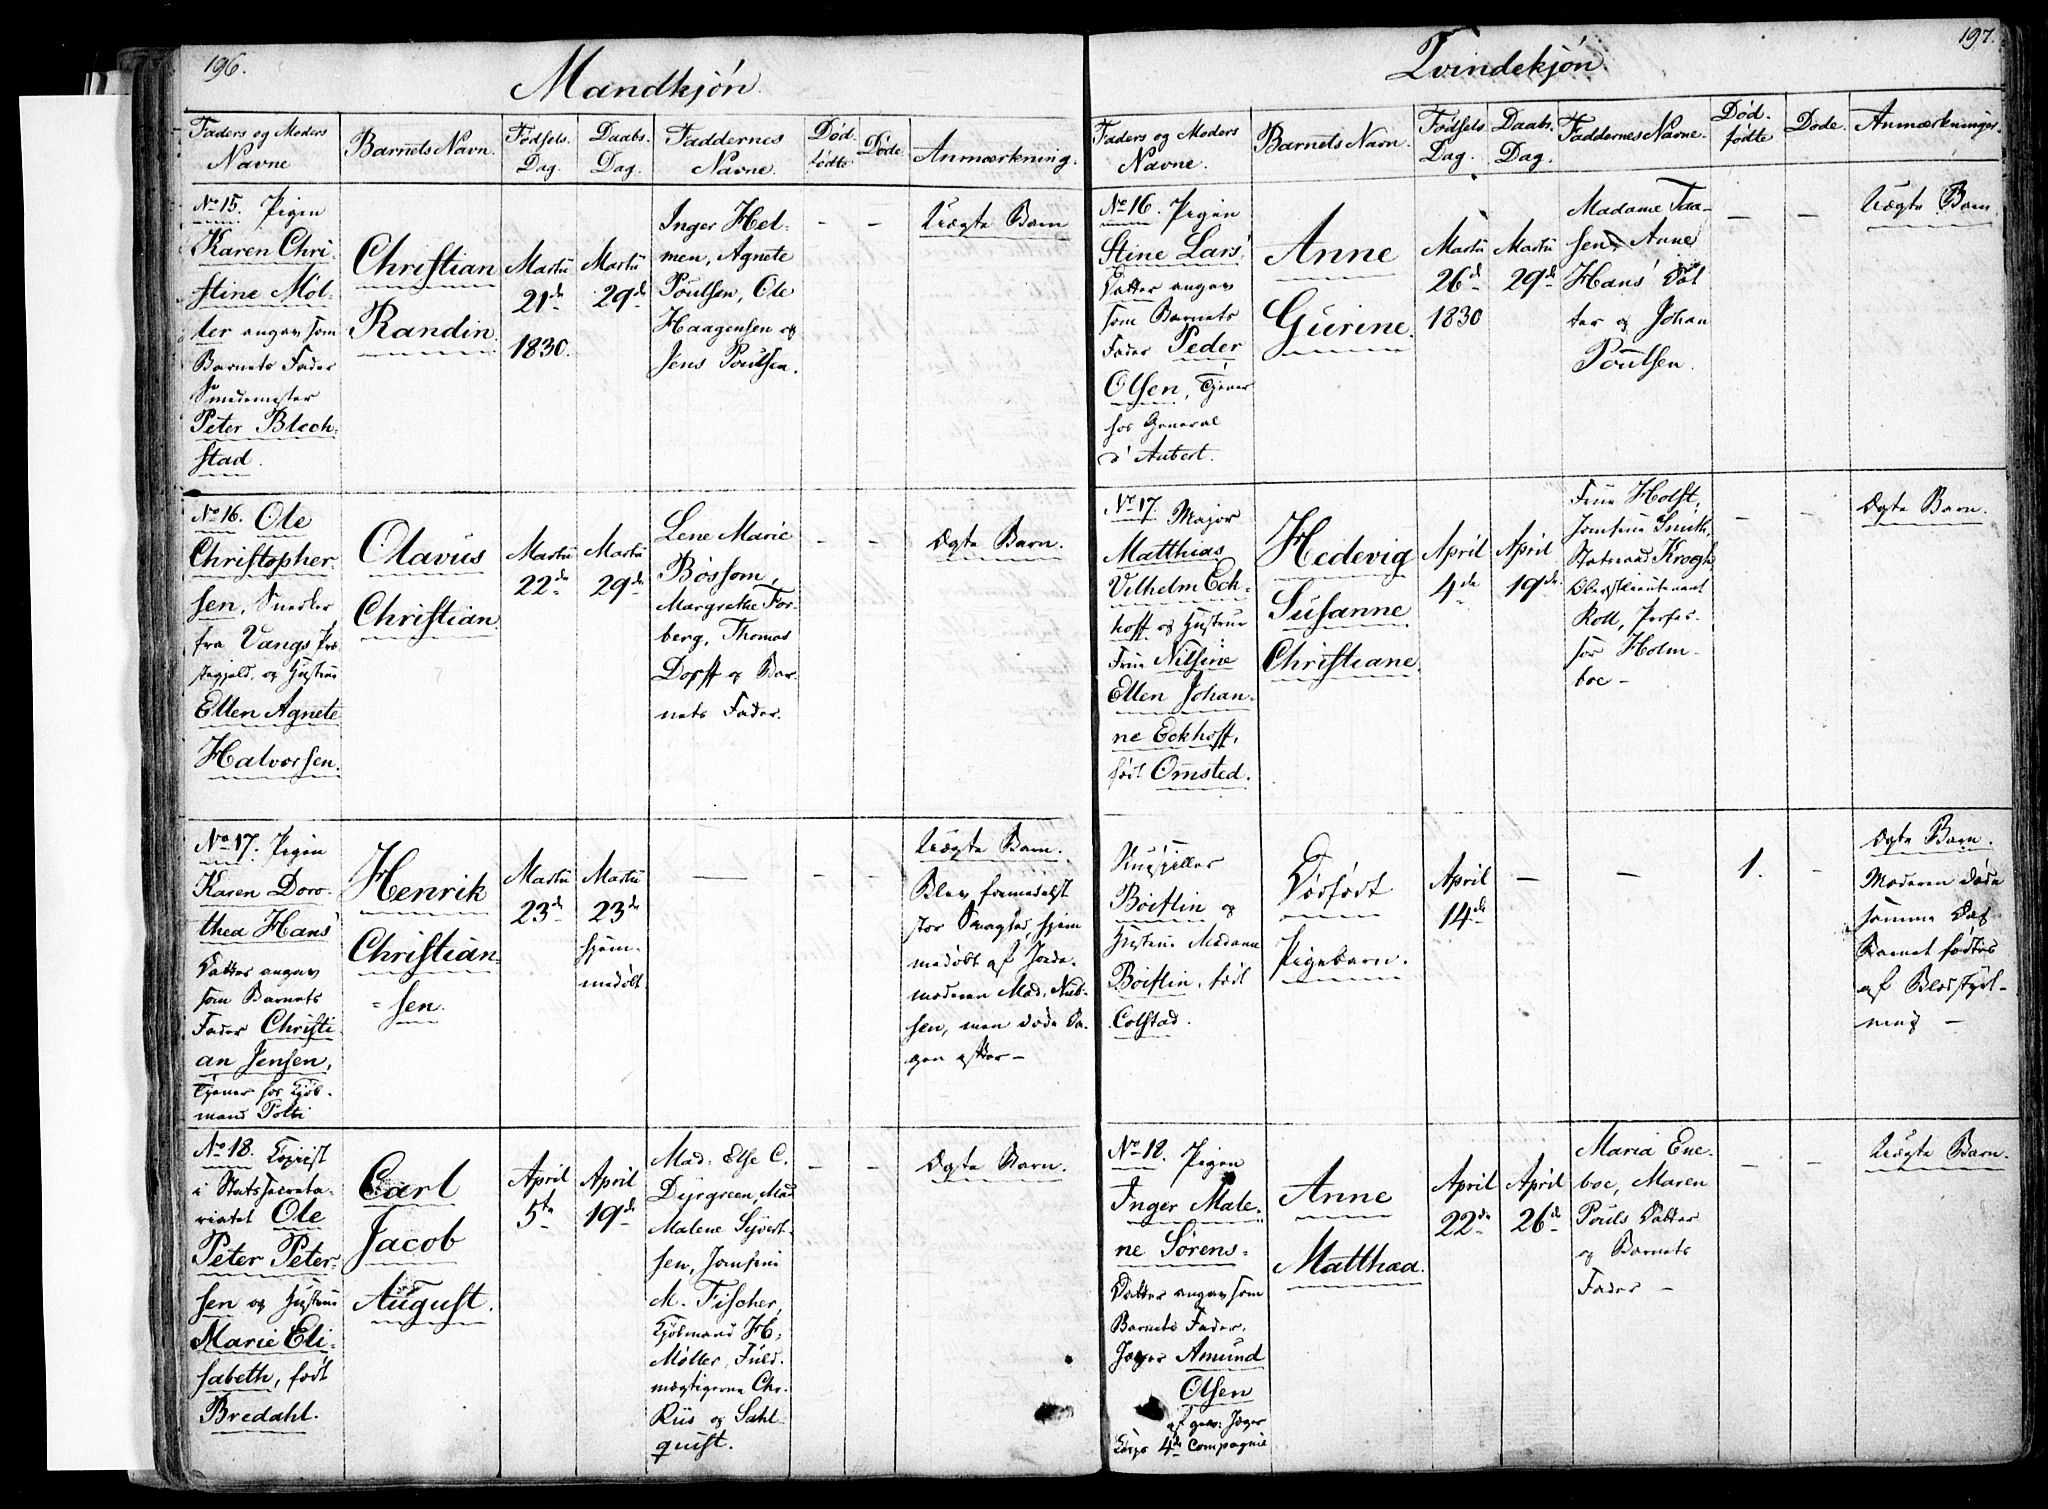 196.
Mandkjón.
Faders og Moders Navne
Barnets Navn.
Fødsels Dag.
Daabs Dag.
Faddernes Navne.
Død fødte
Døde
Anmærkning.
No 15. Pigen
Karen Chri-
stine Mól-
ler angav som
Barnets Fader
Smedemester
Peter Blech-
stad.
Christian
Randin.
Martii
21de
1830.
Martii
29de
Inger Hel-
men, Agnete
Poulsen, Ole
Haagensen og
Jens Poulsen.
-
-
Uægte Barn
No 16. Ole
Christopher-
sen, Snedker
fra Vangs Pre-
stegjeld, og Hustrue
Ellen Agnete
Halvorsen.
Olavus
Christian.
Martii
22de
Martii
29de
Lene Marie
Bóssom,
Margrethe For-
berg, Thomas
Dorff og Bar-
nets Fader.
-
-
Ægte Barn.
No 17. Pigen
Karen Doro-
thea Hans'
Datter angav
som Barnets
Fader Christi-
an Jensen,
Tjener hos Kjøb-
mand Poltz
Henrik
Christian-
sen.
Martii
23de
Martii
23de
hjem-
medøbt.
-
-
-
Uægte Barn.
Blev formedelst
stor Svaghed, hjem
medøbt af Jorde-
moderen Mad. Niel-
sen, men døde Da-
gen efter -
No 18. Copiist
i Statssecreta-
riatet Ole
Peter Peter-
sen og Hustrue
Marie Eli-
sabeth, født
Bredahl.
Carl
Jacob
August.
April
5te
April
19de
Mad: Else C.
Dyrgreen, Mad
Malene Syvert-
sen, Jomfrue
M. Fischer,
Kjøbmand H.
Møller, Fuld-
mægtigerne Chr.
Riis og Sahl-
quist.
-
-
Ægte Barn.
197.
Qvindekjón.
Faders og Moders Navne.
Barnets Navn.
Fødsels Dag.
Daabs Dag.
Faddernes Navne.
Død-fødte
Døde.
Anmærkninger.
No 16. Pigen
Stine Lars'
Datter angav
som Barnets
Fader Peder
Olsen, Tjener
hos General
d'Aubert.
Anne
Gurine.
Martii
26de
1830
Martii
29de
Madame Taa-
sen, Anne
Hans' Dat
ter og Johan
Poulsen.
-
-
Uægte Barn
No 17. Major
Matthias
Vilhelm Eck-
hoff og Hustrue
Frue Nilsine
Ellen Johan-
ne Eckhoff,
født Omsted.
Hedevig
Susanne
Christiane.
April
4de
April
19de
Frue Holst,
Jomfrue Smith
Statsraad Krogh,
Oberstlieutenant
Roll, Profes-
sor Holm-
boe -
-
-
Ægte Barn.
Boiflin og
Hustrue Madame
Boiflin, født
Colstad.
Dødfødt
Pigebarn.
April
14de
-
-
1.
-
Ægte Barn.
Moderen døde
samme Dag
Barnet fødtes
af Blodstyrt-
ning -
No 18. Pigen
Inger Male-
ne Sørens-
Datter angav som
Barnets Fader.
Jæger Amund
Olsen
af gev: Jæger
Corps 4de Compagnie
Anne
Matthæa.
April
22de
April
26de
Maria Ene-
boe, Maren
Pouls Datter
og Barnets
Fader -
-
-
Uægte Barn.